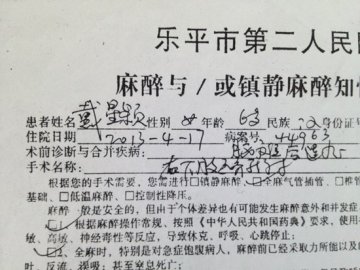 乐平市第二人民
麻醉与/或镇静麻醉知
患者姓名 戴 性别 女 年龄 6岁 民族 汉 身份证号
住院日期 2013-4-17 病案号 44963
术前诊断与合并疾病:
手术名称 右下肢
根据您的手术需要,您需进行□镇静麻醉、□全麻气管插管、□椎管
基础、□低温麻醉、□控制性降压。
麻醉一般是安全的,但由于个体差异也有可能发生麻醉意外和并发症
1、根据麻醉操作常规、按照《中华人民共和国药典》要求,使用
敏、高敏、神经毒性等反应,导致休克、呼吸、心跳停止;
2、全麻时,特别是对急症饱腹病人,麻醉前已经采取力所能及
吐、反流、误吸,甚至窒息死亡;